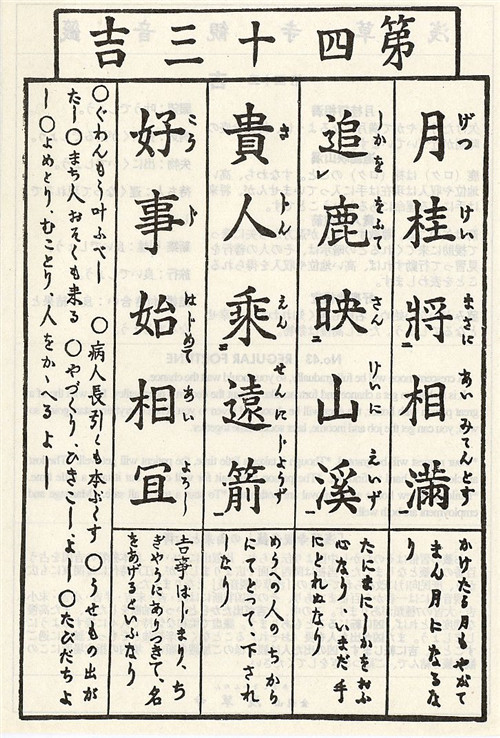 第四十三吉
月桂將相滿
げつけいまさにあいみてんとす
かけたる月もやがて
まん月になるな
り
追鹿映山溪
しかををふてさんけいにえいず
たにまに、しかをおふ
心なり、いまだ手
にとれぬなり
貴人乘遠箭
きじんえんせんにじようず
めうへの人のちから
にてたつて下され
るなり
好事始相冝
こうじはじめてあいよろし
吉事はじまり、ち
ぎやうにありつきて、名
をあげるといふなり
〇ぐわんもう叶ふべし 〇病人長引くも本ぷくす 〇うせもの出が
たし 〇まち人おそくも来る 〇やづくり、ひきこしよし 〇たびだちよ
し 〇よめとり、むことり人をかゝへるよし